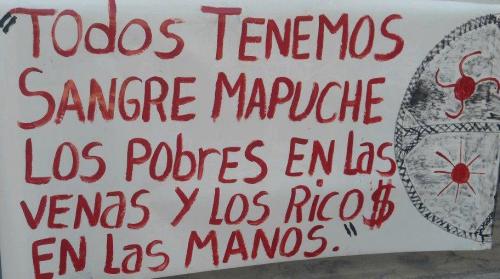 "TODOS TENEMOS
SANGRE MAPUCHE
LOS POBRES EN Las
VENAS Y LOS RICO$
EN Las MANOS."